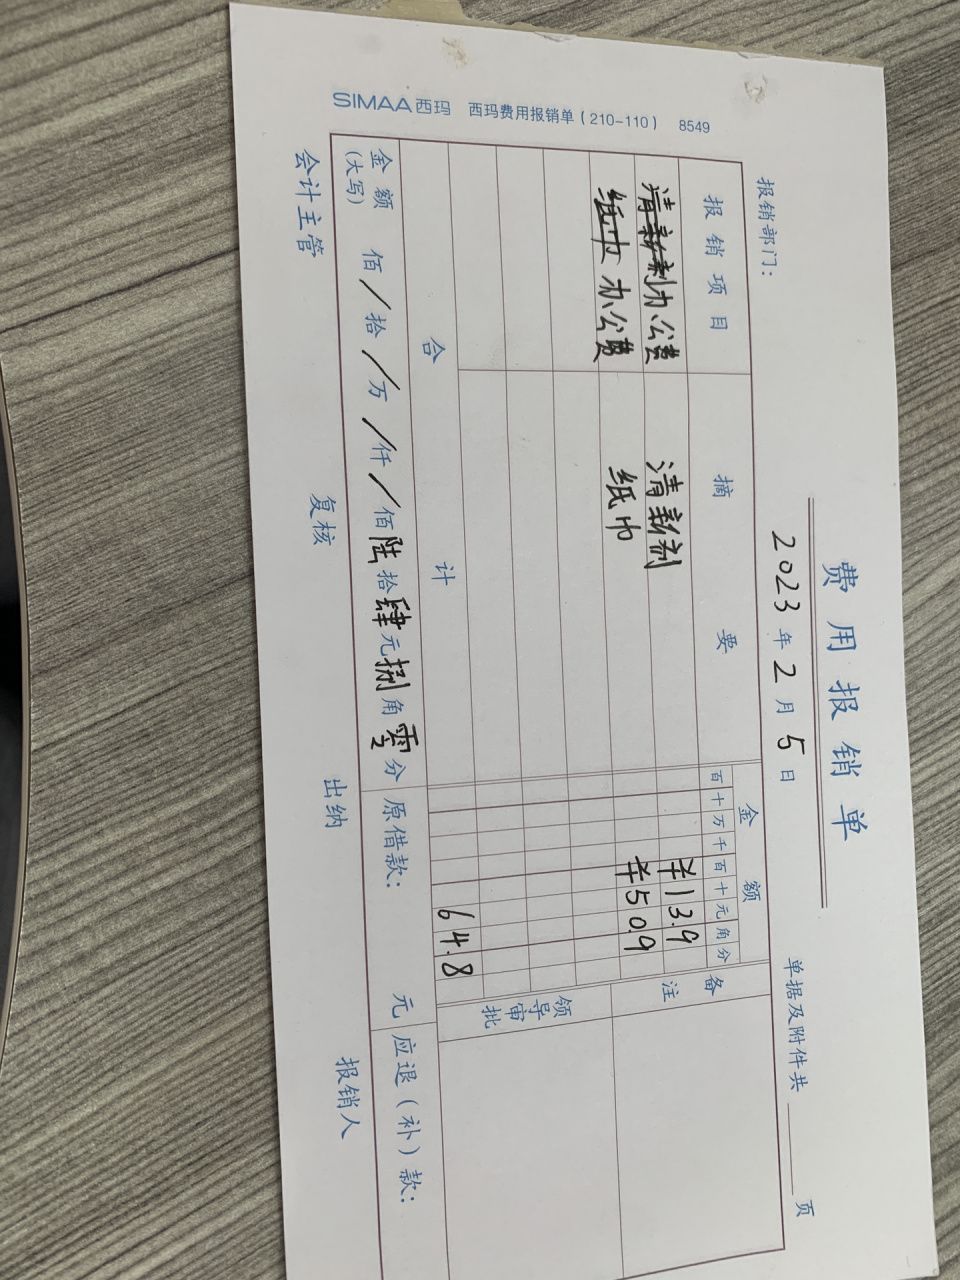 费用报销单
2023年2月5日
报销部门:
单据及附件共 页
报销项目 摘要 金额 备注
百十万千百十元角分
清新剂办公费 清新剂 ¥13.9
纸巾办公费 纸巾 ¥50.9
领导审批
合计 64.8
金额(大写) 佰/拾/万/仟/佰陆拾肆元捌角零分 原借款: 元 应退(补)款:
会计主管 复核 出纳 报销人
SIMAA西玛 西玛费用报销单(210-110) 8549